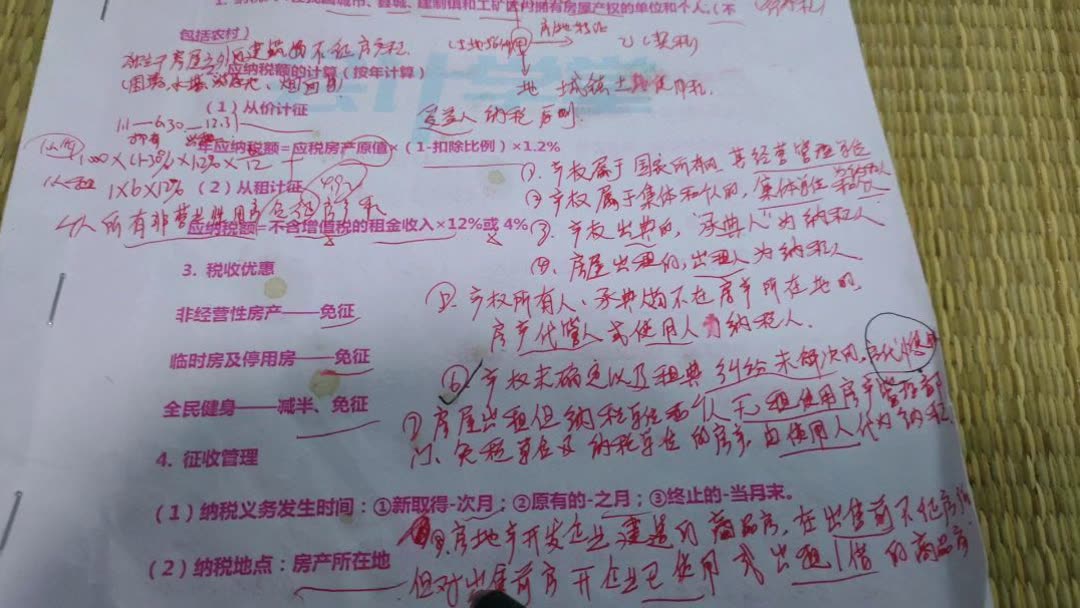 1. 纳税人：在我国城市、县城、建制镇和工矿区内拥有房屋产权的单位和个人（不
包括农村）
独立于房屋之外的建筑物不征房产税
应纳税额的计算（按年计算）
（1）从价计征
1.1—6.30—12.31
受益人纳税原则.
年应纳税额=应税房产原值×（1-扣除比例）×1.2%
①. 产权属于国家所有的，其经营管理单位
（2）从租计征
1×6×12%
②产权属于集体和个人的，集体单位和个人
个人所有非营业性用房免征房产税
应纳税额=不含增值税的租金收入×12%或 4%
③. 产权出典的，承典人为纳税人
④. 房屋出租的，出租人为纳税人.
3. 税收优惠
⑤. 产权所有人、承典人均不在房产所在地的
非经营性房产——免征
房产代管人或使用人为纳税人.
临时房及停用房——免征
⑥产权未确定以及租典纠纷未解决的，
全民健身——减半、免征
⑦房屋出租但纳税单位和个人无租使用房产管理部
门、免税单位及纳税单位的房产，由使用人代为纳税.
4. 征收管理
（1）纳税义务发生时间：①新取得-次月；②原有的-之月；③终止的-当月末。
⑧.房地产开发企业建造的商品房，在出售前不征房产税
（2）纳税地点：房产所在地
但对出售前房开企业已使用或出租、出借的商品房